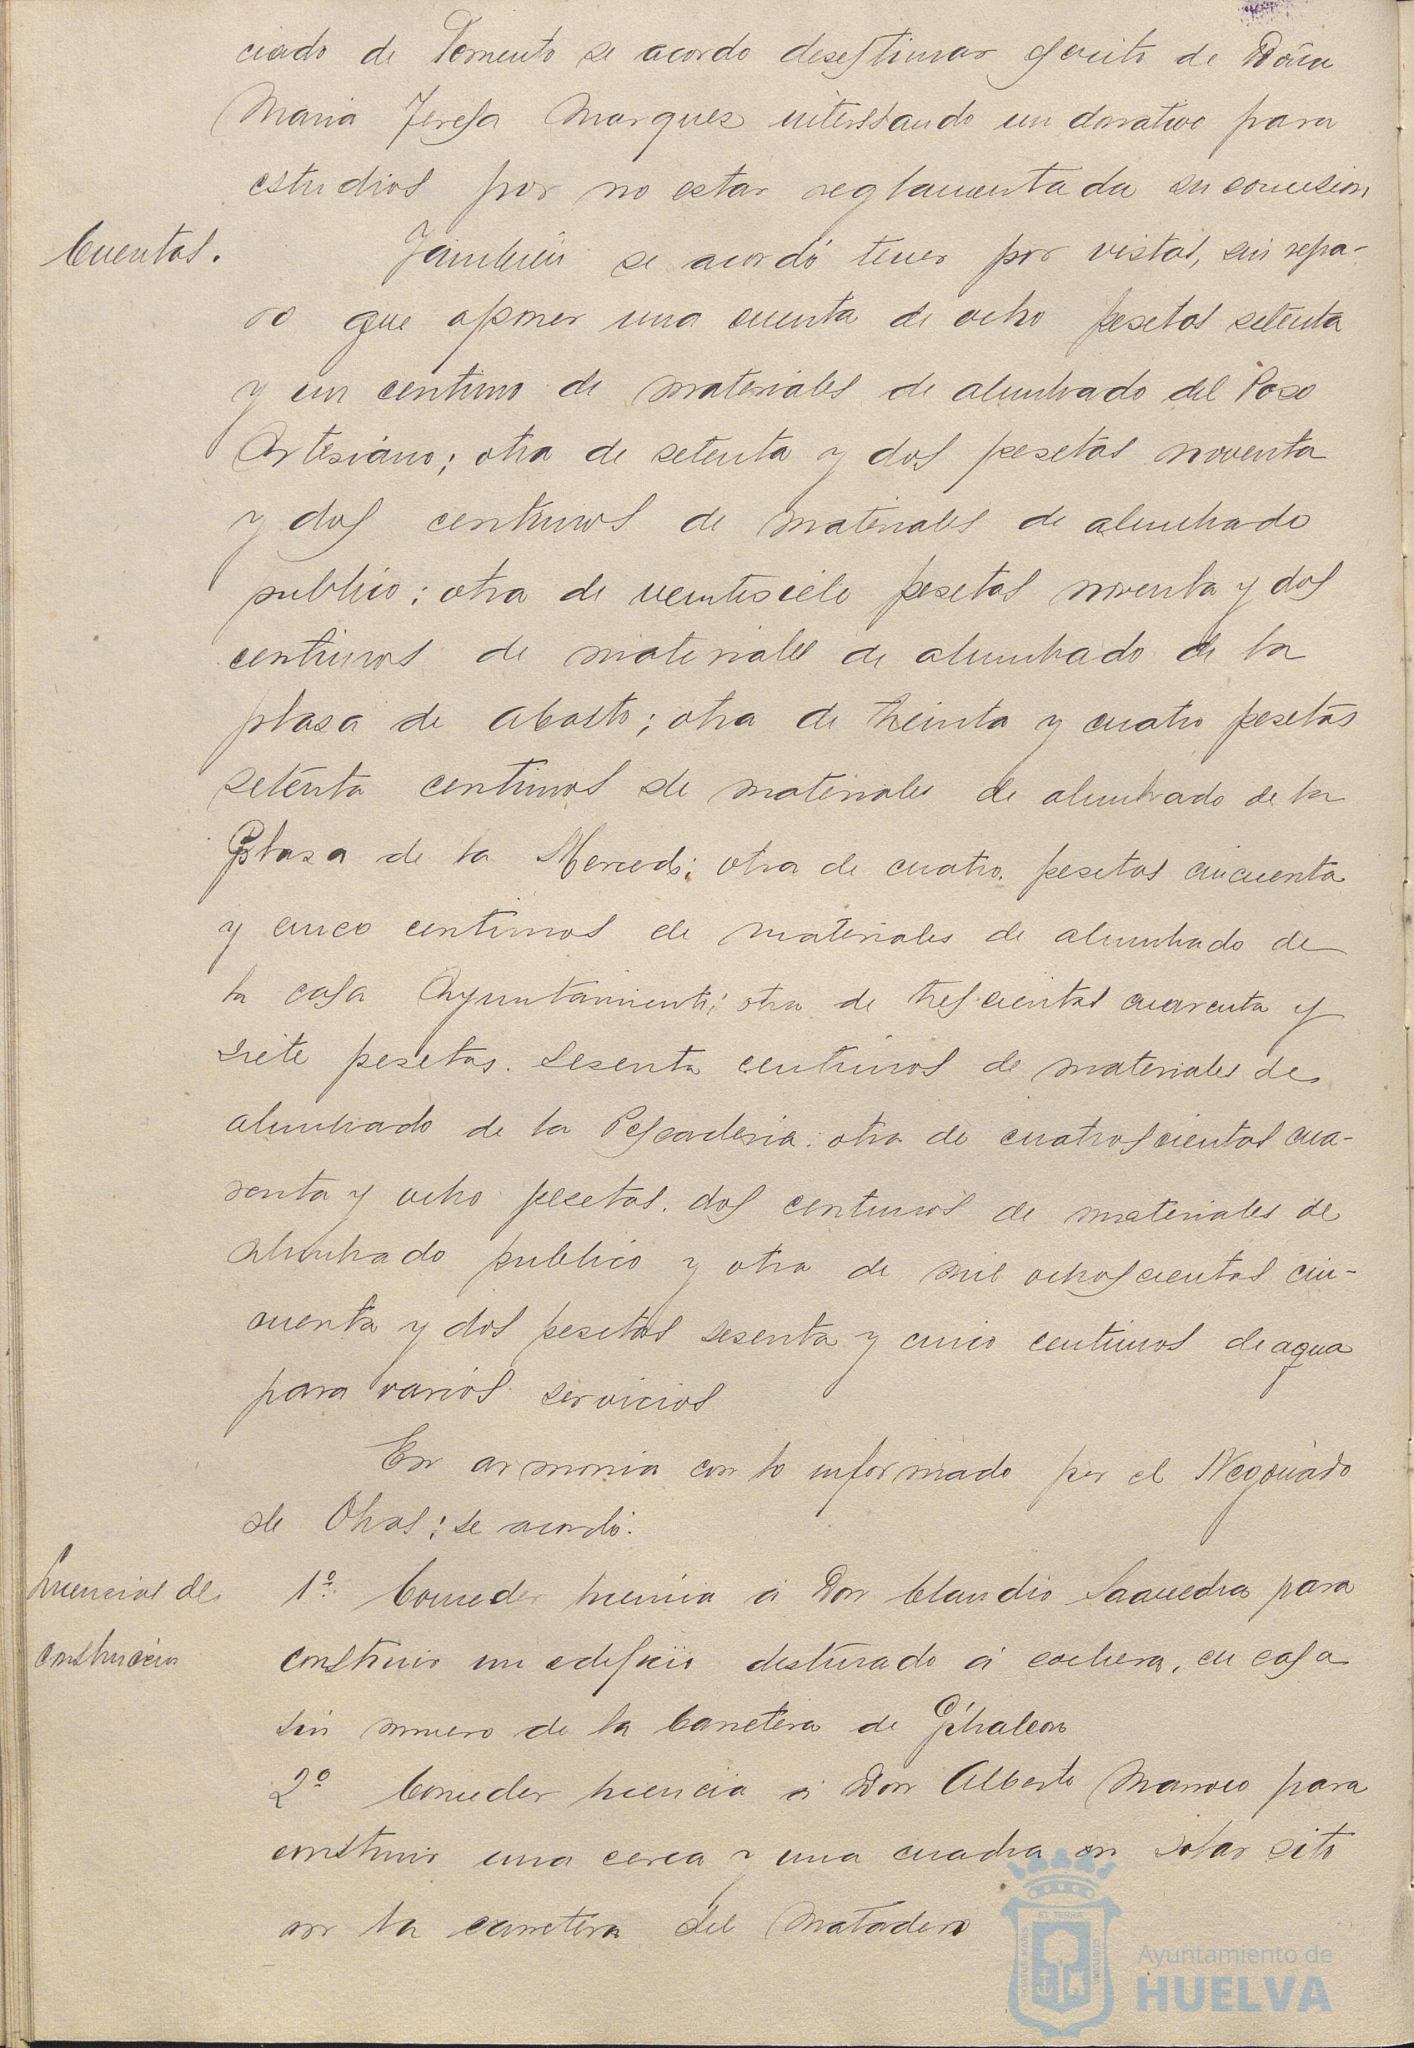 ciado de Fomento se acordo desestimar escrito de Doña
Maria Teresa Marquez interesando un donativo para
estudios por no estar reglamentada su concesion
Cuentas.
Tambien se acordó tener por vistas, sin repa-
ro que oponer una cuenta de ocho pesetas setenta
y un centimo de materiales de alumbrado del Poso
Artesiano; otra de setenta y dos pesetas noventa
y dos centimos de materiales de alumbrado
publico; otra de veintesiete pesetas noventa y dos
centimos de materiales de alumbrado de la
plasa de abasto; otra de treinta y cuatro pesetas
setenta centimos de materiales de alumbrado de la
Plasa de la Merced; otra de cuatro pesetas cincuenta
y cinco centimos de materiales de alumbrado de
la casa Ayuntamiento; otra de trescientas cuarenta y
siete pesetas. sesenta centimos de materiales de
alumbrado de la Pescaderia. otra de cuatroscientas cua-
renta y ocho pesetas. dos centimos de materiales de
alumbrado publico y otra de mil ochoscientas cin-
cuenta y dos pesetas sesenta y cinco centimos de agua
para varios servicios
En armonia con lo informado por el Negociado
de Obras; se acordó:
Licencias de
construcción
1º Conceder licencia á Don Claudio Saavedra para
construir un edificio destinado á cochera, en casa
sin numero de la Carretera de Gibraleon
2º Conceder licencia á Don Alberto Manovo para
construir una cerca y una cuadra en solar sito
en la carretera del Matadero
Ayuntamiento de
HUELVA